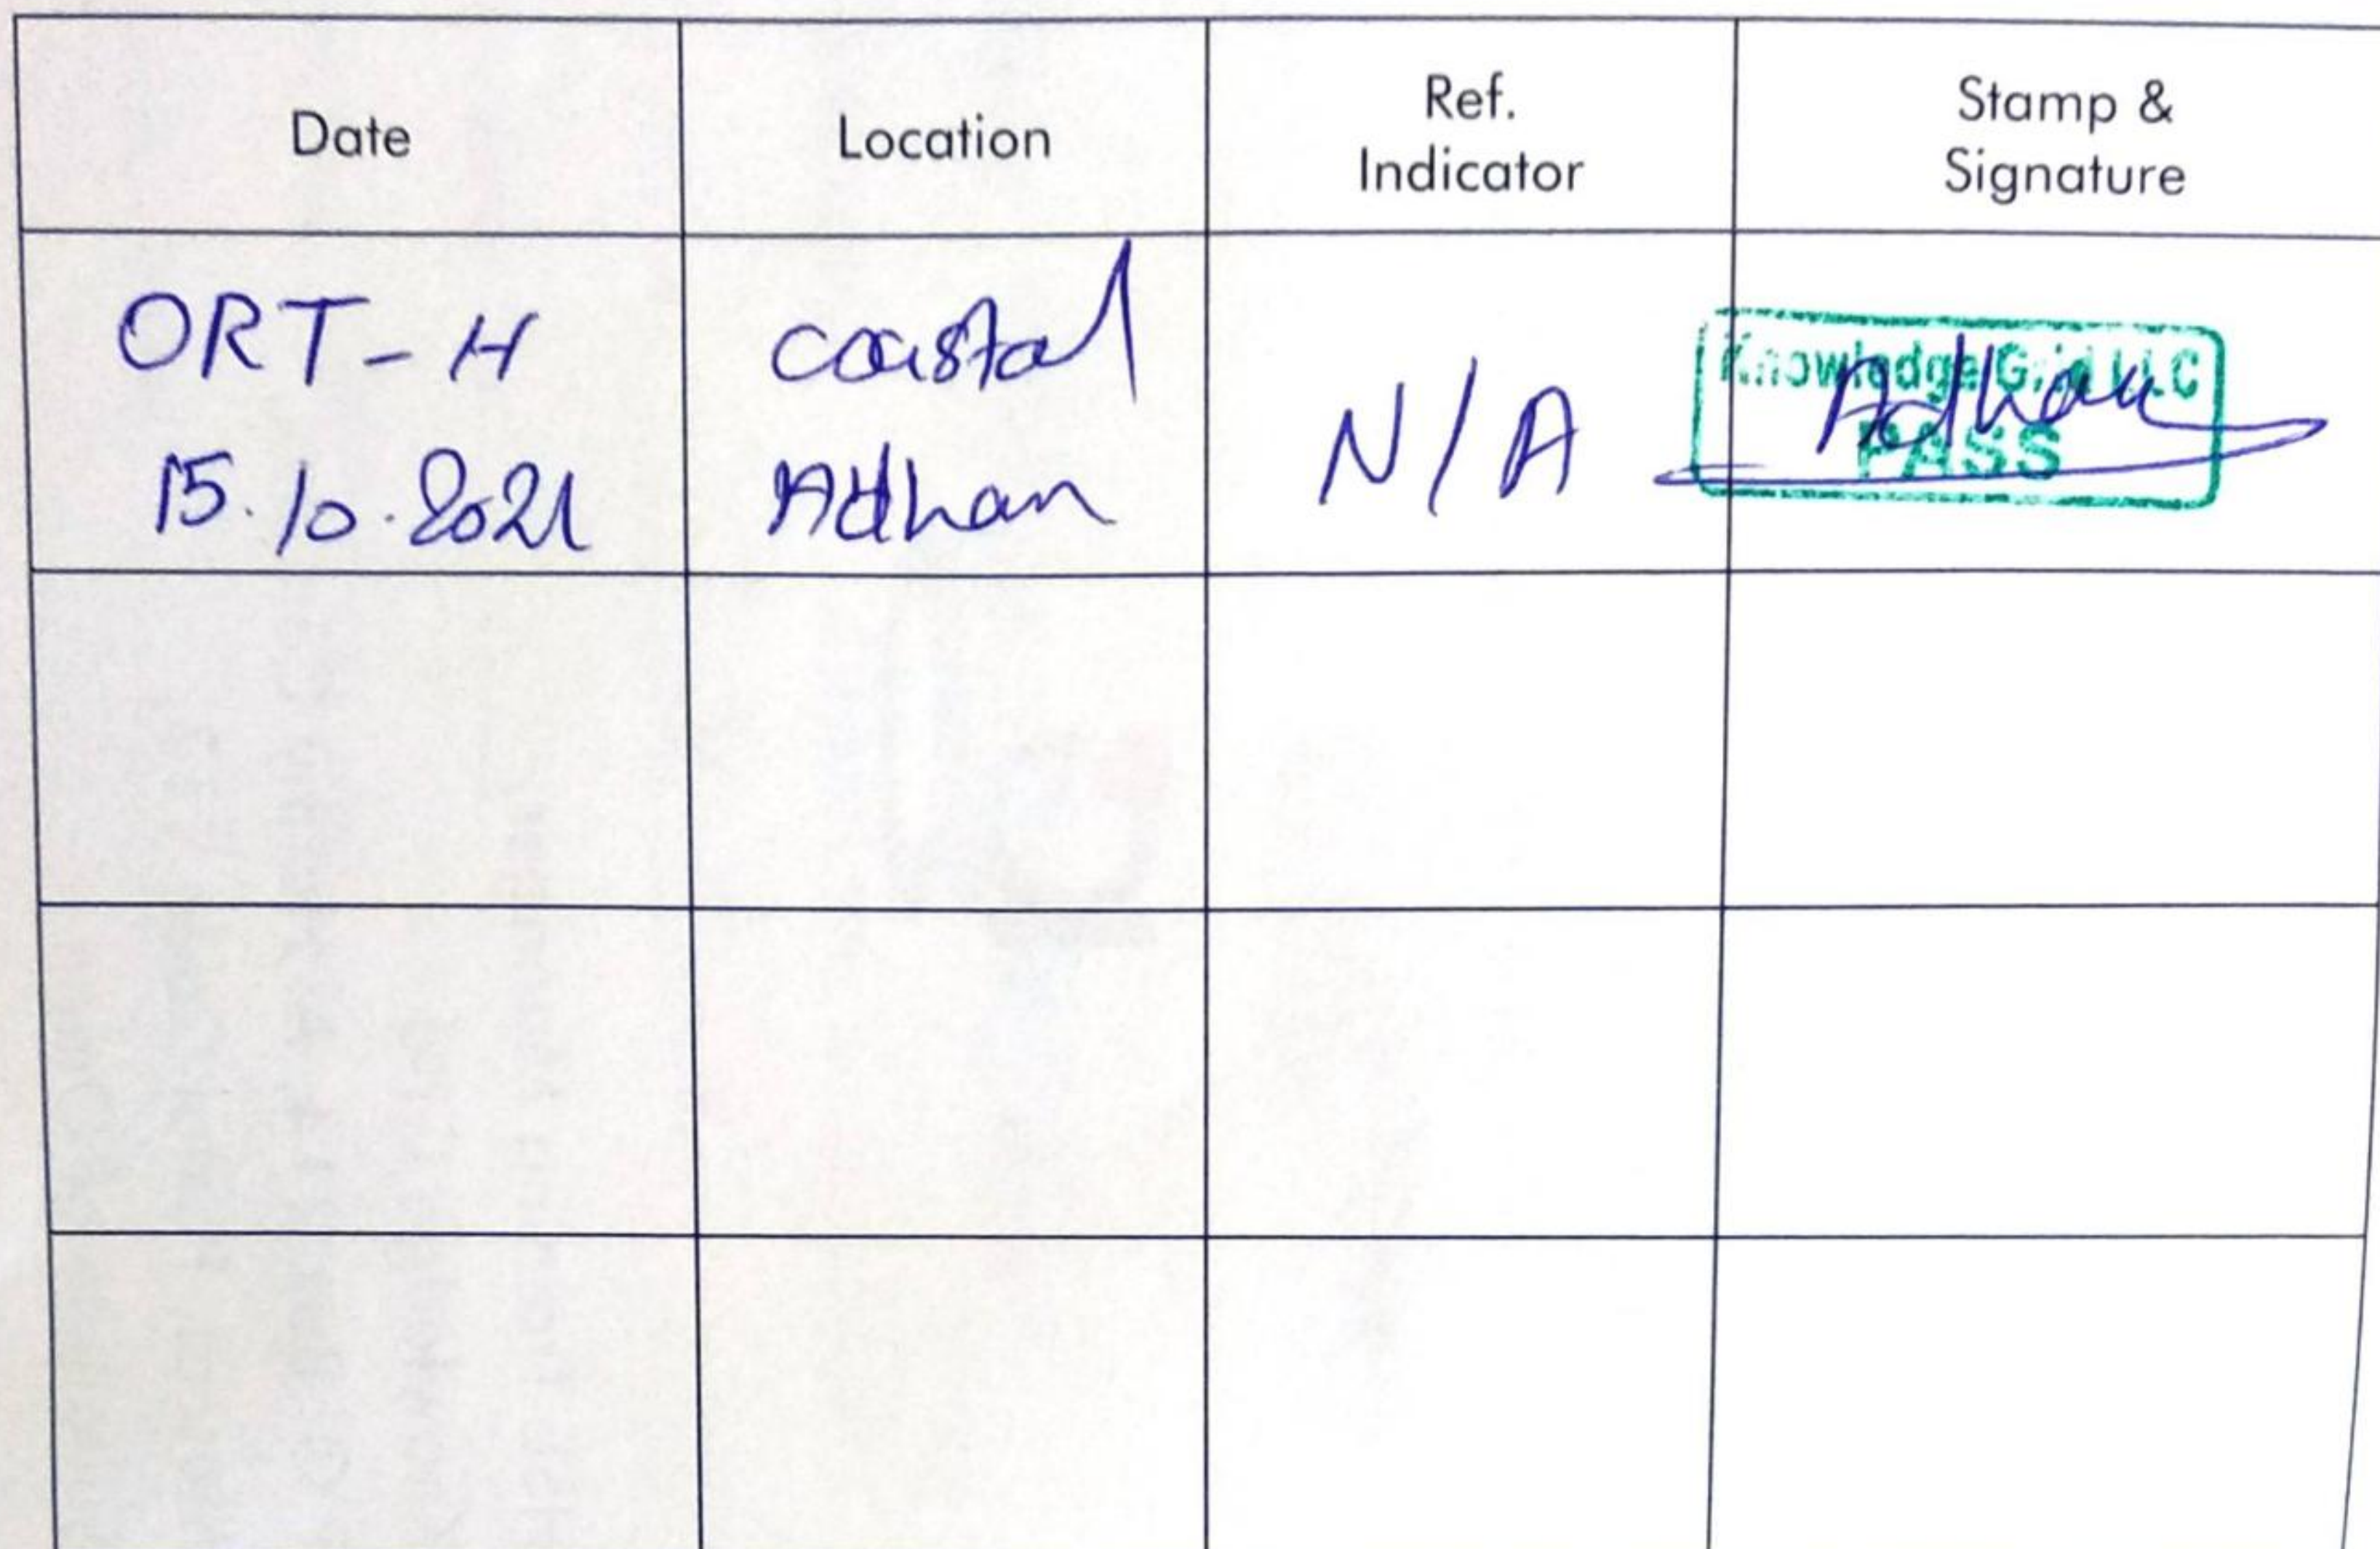 Date
Location
Ref.
Indicator
Stamp &
Signature
ORT-H
15.10.2021
coastal
Adhan
N/A
Knowledge Grid LLC
PASS
Adhan